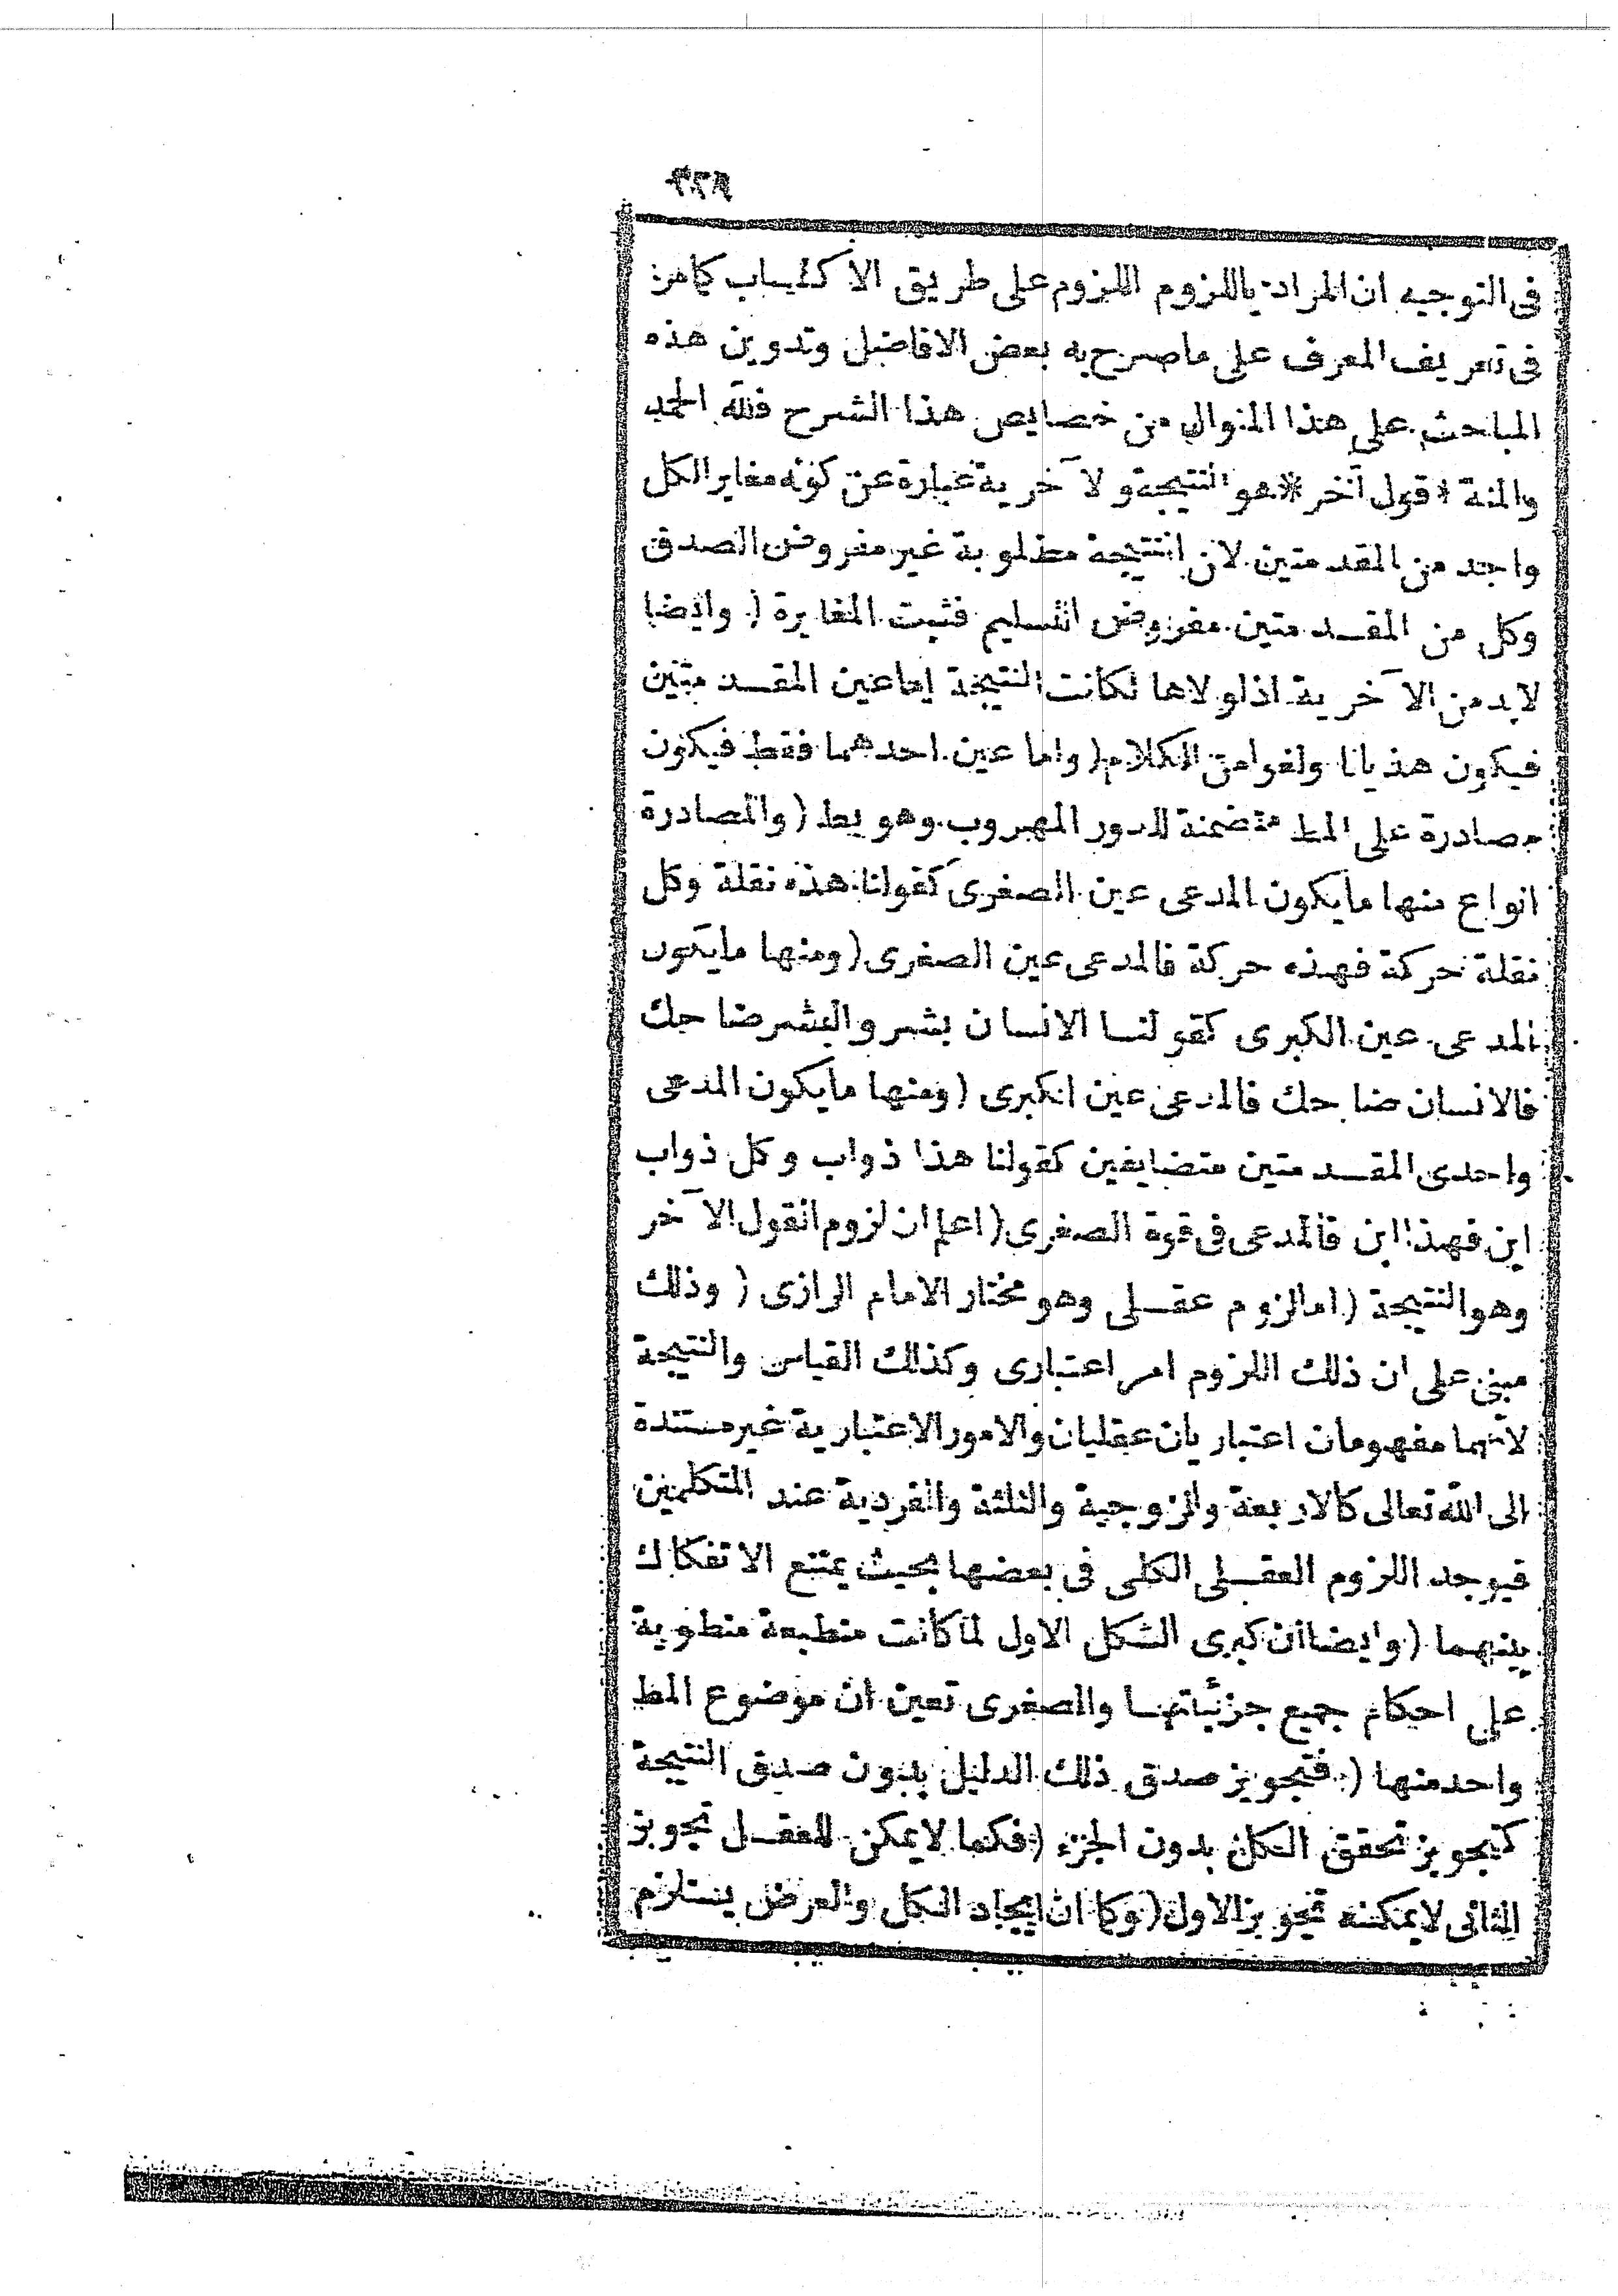 فى التوجيه ان المراد باللزوم اللزوم على طريق الاكتساب كامر
فى تعريف المعرف على ماصرح به بعض الافاضل وتدوين هذه
المباحث على هذا المنوال من خصايص هذا الشرح فلله الحمد
والمنة * قول آخر * هو النتيجة والآخرية عبارة عن كونه مغاير الكل
واحد من المقدمتين لان النتيجة مطلوبة غير مفروض الصدق
وكل من المقدمتين مفروض التسليم فثبت المغايرة ( وايضا
لابد من الآخرية اذلولاها لكانت النتيجة اماعين المقدمتين
فيكون هذيانا ولغوا من الكلام ( واما عين احدهما فقط فيكون
مصادرة على المط متضمنة للدور المهروب وهو بط ( والمصادرة
انواع منها مايكون المدعى عين الصغرى كقولنا هذه نقلة وكل
نقلة حركة فهذه حركة فالمدعى عين الصغرى ( ومنها مايكون
المدعى عين الكبرى كقولنا الانسان بشر والبشر ضاحك
فالانسان ضاحك فالمدعى عين الكبرى ( ومنها مايكون المدعى
واحدى المقدمتين متضايفين كقولنا هذا ذواب وكل ذواب
ابن فهذا ابن فالمدعى فى قوة الصغرى ( اعلم ان لزوم القول الآخر
وهو النتيجة ( امالزوم عقلى وهو مختار الامام الرازى ( وذلك
مبنى على ان ذلك اللزوم امر اعتبارى وكذلك القياس والنتيجة
لانهما مفهومان اعتباريان عقليان والامور الاعتبارية غير مستندة
الى الله تعالى كالاربعة والزوجية والثلثة والفردية عند المتكلمين
فيوجد اللزوم العقلى الكلى فى بعضها بحيث يمتنع الانفكاك
بينهما ( وايضا ان كبرى الشكل الاول لما كانت منطبعة منطوية
على احكام جميع جزئياتها والصغرى تعين ان موضوع المط
واحد منها ( فتجويز صدق ذلك الدليل بدون صدق النتيجة
كتجويز تحقق الكل بدون الجزء ( فكما لايمكن للعقل تجويز
الثانى لايمكنه تجويز الاول ( وكما ان ايجاد الكل والعرض يستلزم